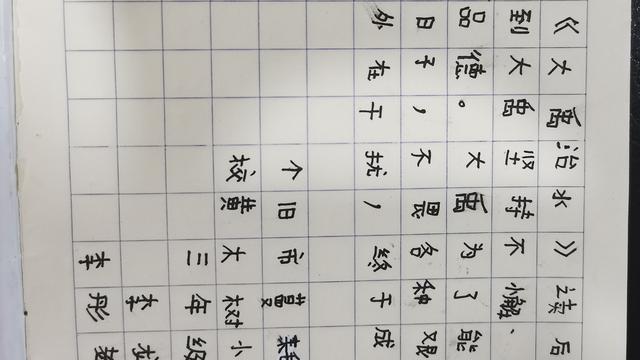 《大禹治水》读后
到大禹坚持不懈、
品德。大禹为了能
日子，不畏各种艰
外在干扰，终于成
个旧市蔓耗
校黄大树小
三年级
李
李彤